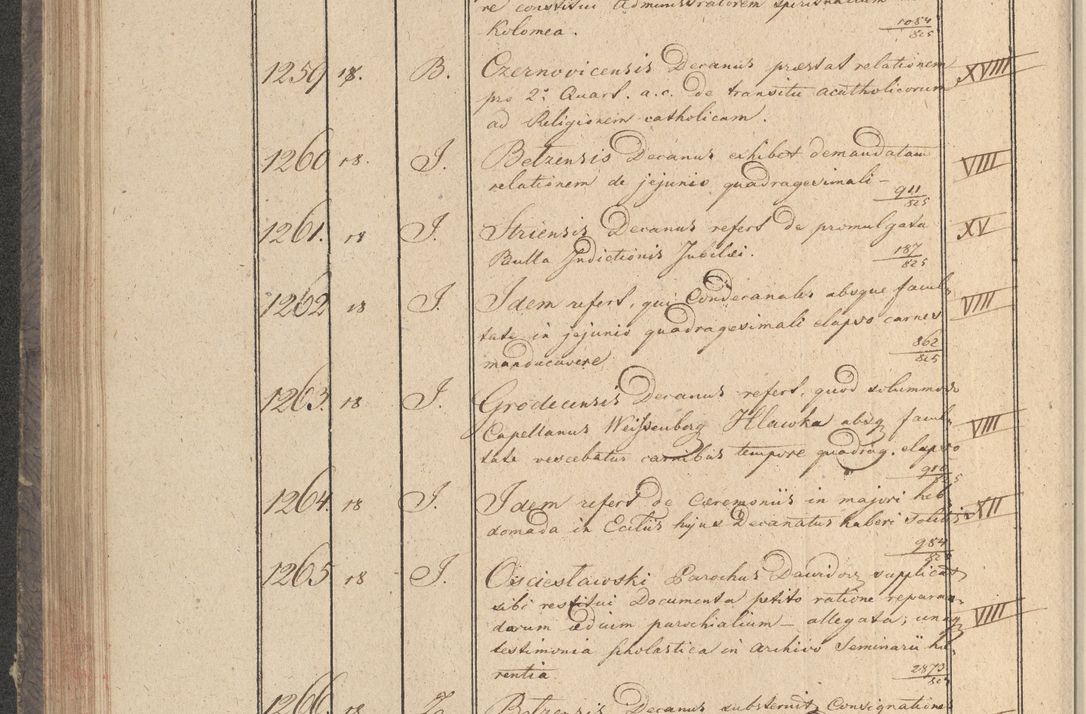 re constitui Administratorem
Kolomea. 1084/825
1259 18. B. Czernovicensis Decanus præstat relationem XVIII
pro 2º Quart. a.c. de transitu acatholicorum
ad Religionem catholicam.
1260 18. I. Betzensis Decanus exhibet demandatam VIII
relationem de jejunio quadragesimali – 911/825
1261. 18 I. Striensis Decanus refert de promulgata XV
Bulla Indictionis Jubilæi. 187/825
1262 18 I. Idem refert, qui Condecanales absque facul- VIII
tate in jejunio quadragesimali elapso carnes
manducavere 862/825
1263. 18 I. Grodecensis Decanus refert, quod solummodo
Capellanus Weissenberg Hlawka absq facul- VIII
tate vescebatur carnibus tempore quadrag. elapso
910/825
1264. 18 I. Idem refert de Cæremoniis in majori heb- XII
domada in Eccliis hujus Decanatus haberi solitis
984/825
1265 18 I. Oscieslawski Parochus Dawidov supplicat
sibi restitui Documenta petito ratione reparan-
darum ædium parochialium – allegata, unaq VIII
testimonia scholastica in Archivo Seminarii hæ-
rentia 2873/825
1266. 18 Betzensis Decanus substernit Consignationem